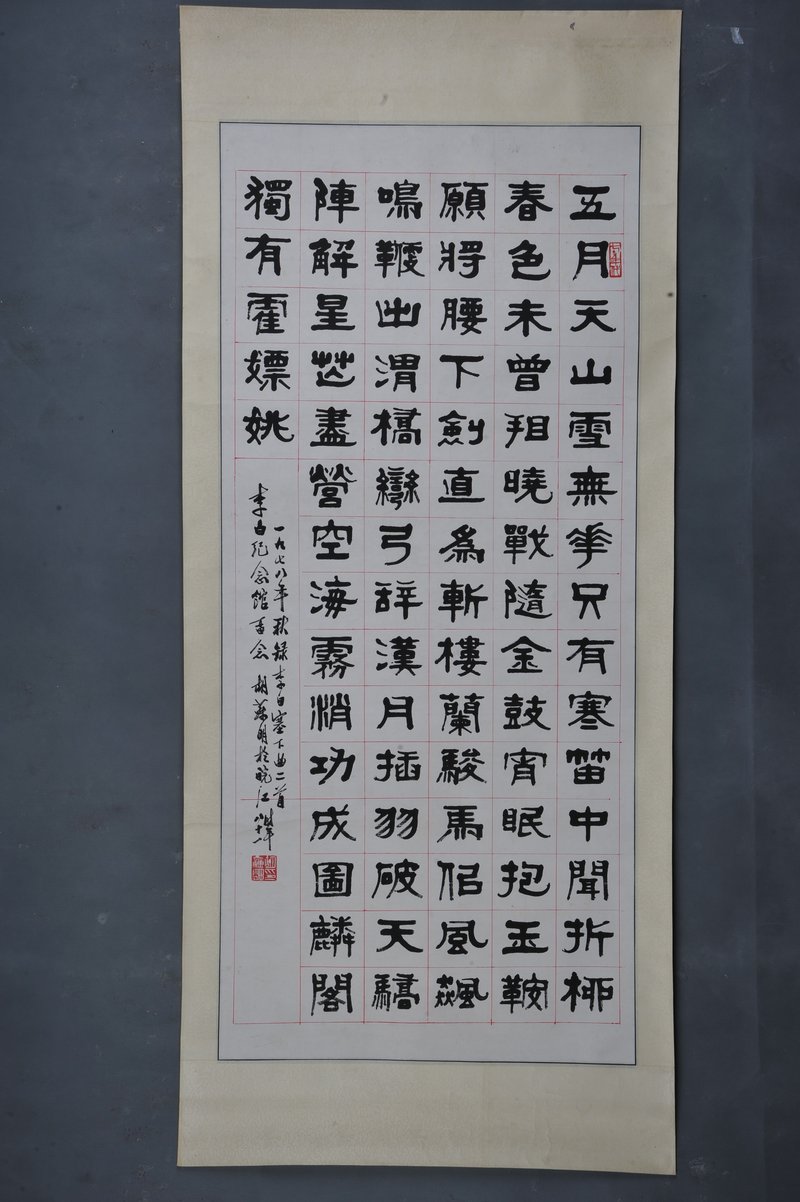 五月天山雪無華只有寒笛中聞折柳
春色未曾看曉戰隨金鼓宵眠抱玉鞍
願將腰下劍直為斬樓蘭駿馬似風飆
鳴鞭出渭橋彎弓辭漢月插羽破天驕
陣解星芒盡營空海霧消功成圖麟閣
獨有霍嫖姚
一九七八年秋錄李白塞下曲二首
李白紀念館留念 胡蘇明於皖江時年八十